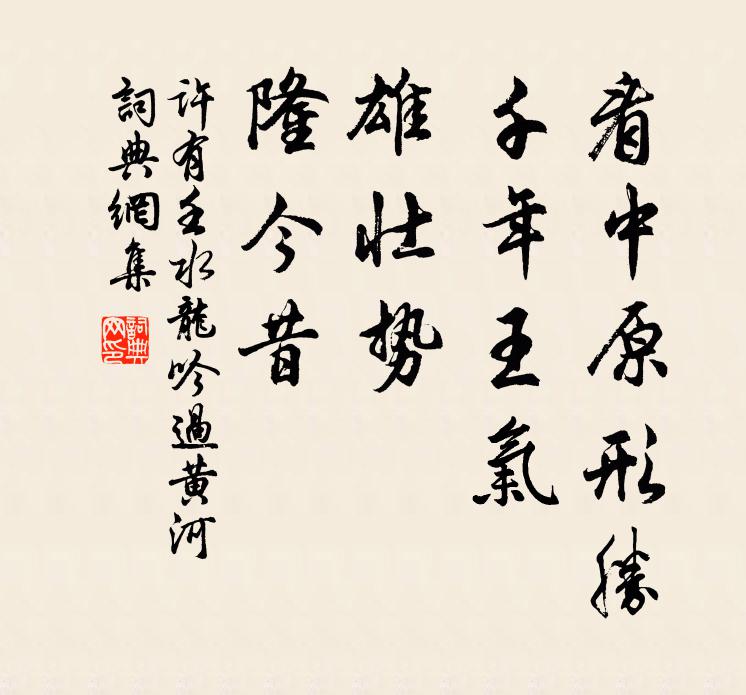 看中原形勝
千年王氣
雄壯勢
隆今昔
許有壬水龍吟過黃河
詞典網集
詞典網印